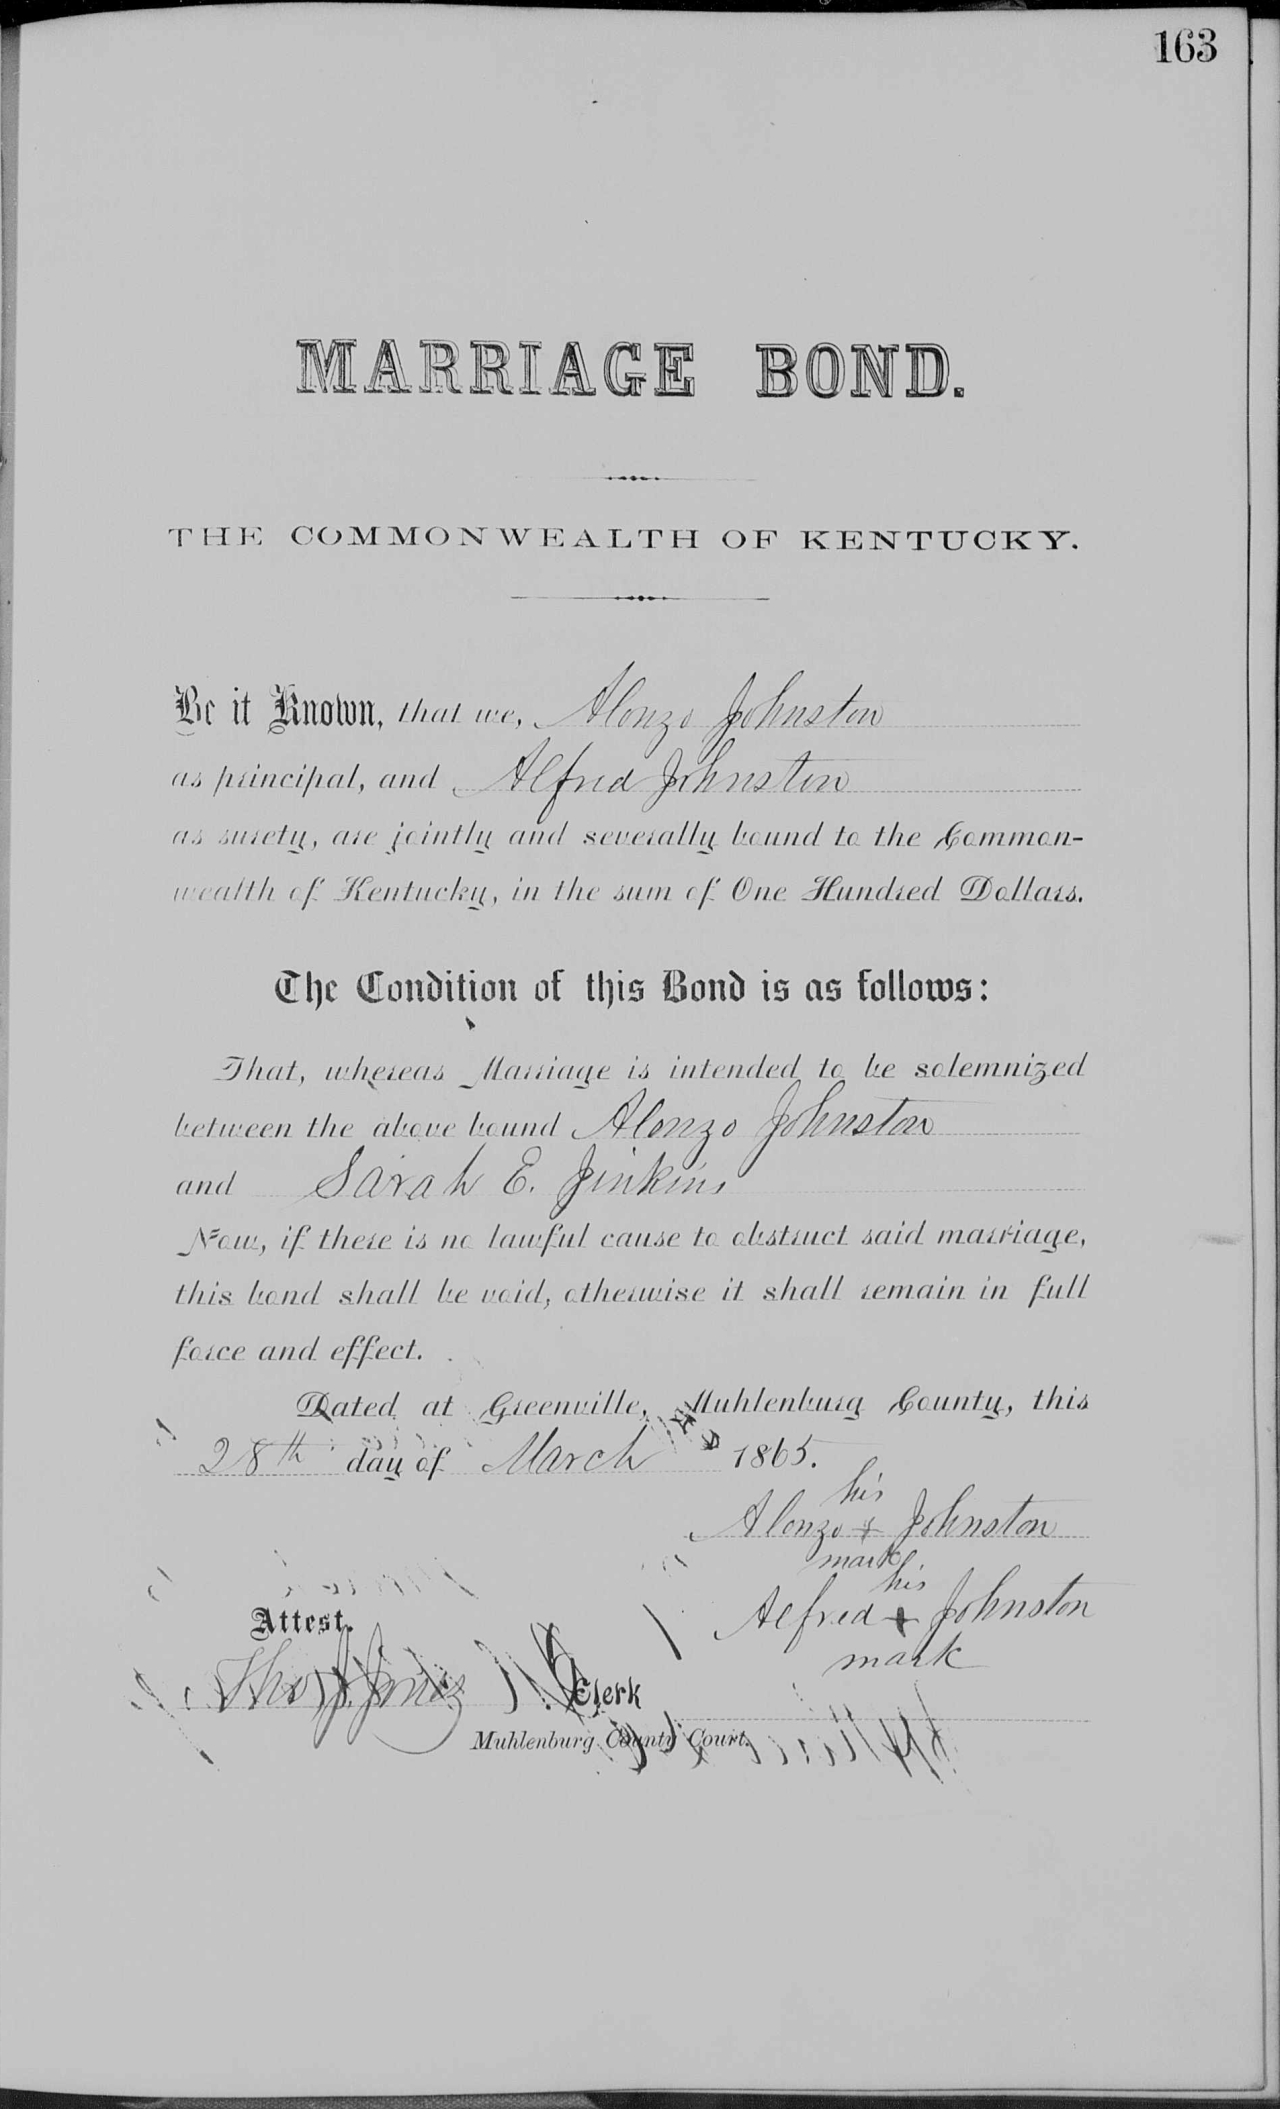 163
MARRIAGE BOND.
THE COMMONWEALTH OF KENTUCKY.
Be it Known, that we, Alonzo Johnston
as principal, and Alfred Johnston
as surety, are jointly and severally bound to the Common-
wealth of Kentucky, in the sum of One Hundred Dollars.
The Condition of this Bond is as follows:
That, whereas Marriage is intended to be solemnized
between the above bound Alonzo Johnston
and Sarah E. Jinkins
Now, if there is no lawful cause to obstruct said marriage,
this bond shall be void, otherwise it shall remain in full
force and effect.
Dated at Greenville, Muhlenburg County, this
28th day of March 1865.
his
Alonzo + Johnston
mark
his
Alfred + Johnston
mark
Attest.
Tho. J. Jones Clerk
Muhlenburg County Court.